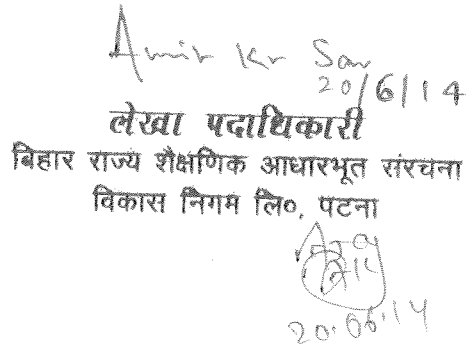 Amir Kr Sar
20/6/14
लेखा पदाधिकारी
बिहार राज्य शैक्षणिक आधारभूत संरचना
विकास निगम लि०, पटना
20.06.14